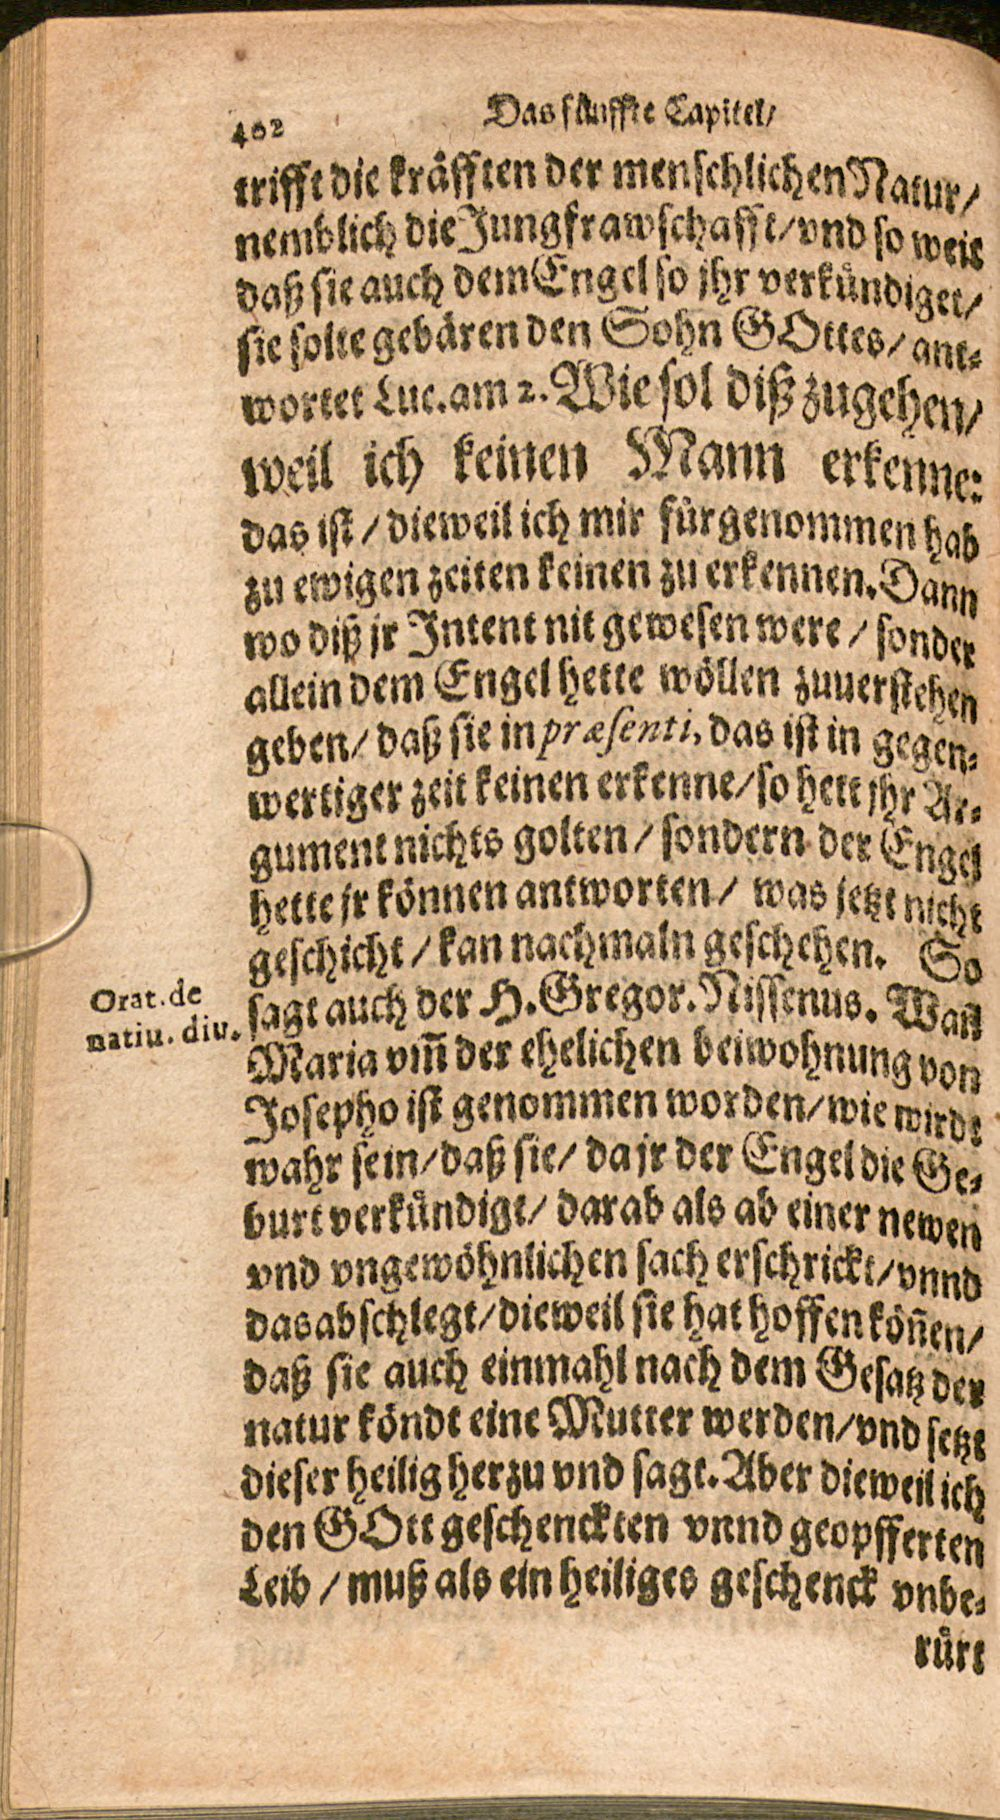 402
Das fünffte Capitel/
trifft die kräfften der menschlichen Natur/
nemblich die Jungfrawschafft/ vnd so weit
daß sie auch dem Engel so jhr verkündiget/
sie solte gebären den Sohn GOttes/ ant-
wortet Luc. am 2. Wie sol diß zugehen/
weil ich keinen Mann erkenne:
das ist / dieweil ich mir fürgenommen hab
zu ewigen zeiten keinen zu erkennen. Dann
wo diß jr Intent nit gewesen were / sonder
allein dem Engel hette wöllen zuuerstehen
geben/ daß sie in præsenti, das ist in gegen-
wertiger zeit keinen erkenne/ so hett jhr Ar-
gument nichts golten / sondern der Engel
hette jr können antworten / was jetzt nicht
geschicht / kan nachmaln geschehen. So
Orat. de
natiu. diu.
sagt auch der H. Gregor. Nissenus. Wañ
Maria vm̃ der ehelichen beiwohnung von
Josepho ist genommen worden/ wie wirdt
wahr sein/ daß sie/ da jr der Engel die Ge-
burt verkündigt/ darab als ab einer newen
vnd vngewöhnlichen sach erschrickt/ vnnd
das abschlegt/ dieweil sie hat hoffen köñen/
daß sie auch einmahl nach dem Gesatz der
natur köndt eine Mutter werden/ vnd setzt
dieser heilig herzu vnd sagt. Aber dieweil ich
den GOtt geschenckten vnnd geopfferten
Leib / muß als ein heiliges geschenck vnbe-
rürt